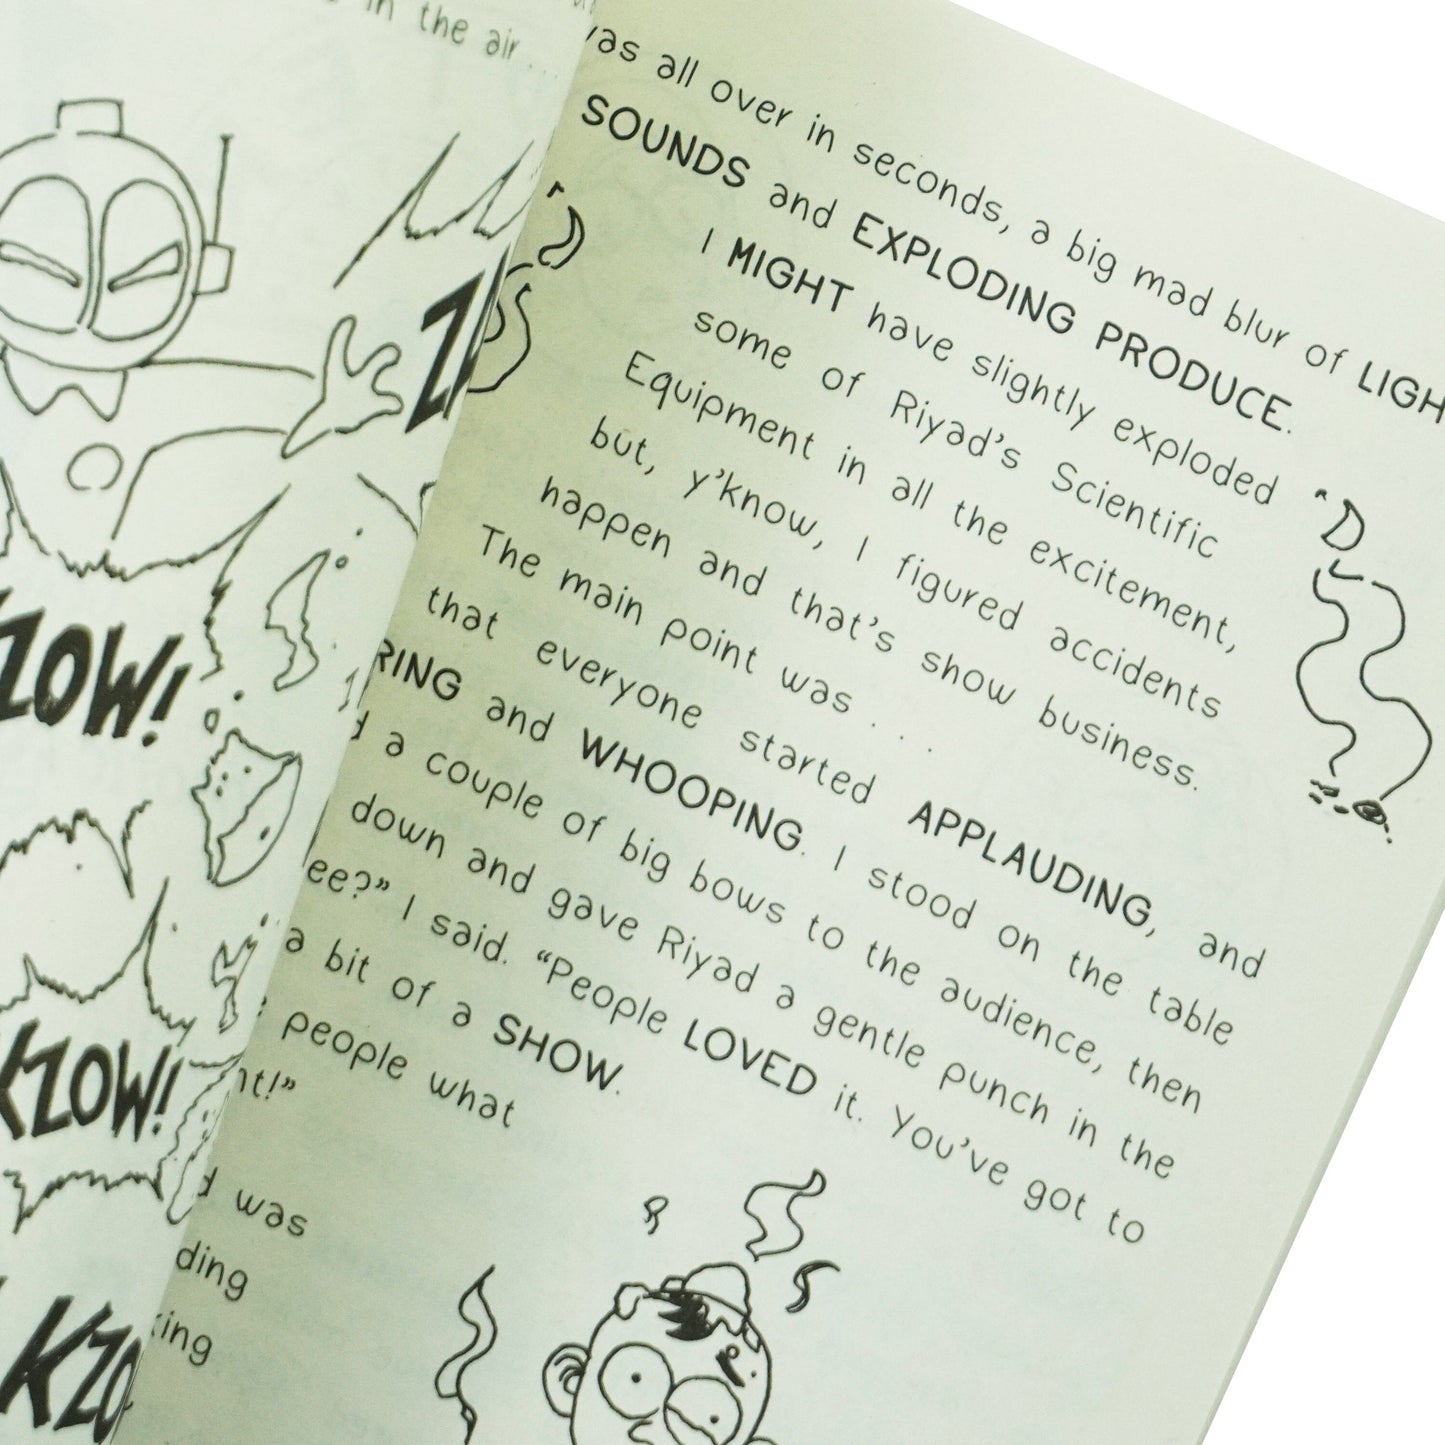 in the air . . .
ZOW!
KZOW!
KZO
was all over in seconds, a big mad blur of LIGH
SOUNDS and EXPLODING PRODUCE.
I MIGHT have slightly exploded
some of Riyad's Scientific
Equipment in all the excitement,
but, y'know, I figured accidents
happen and that's show business.
The main point was . . .
that everyone started APPLAUDING, and
RING and WHOOPING. I stood on the table
a couple of big bows to the audience, then
down and gave Riyad a gentle punch in the
ee?” I said. “People LOVED it. You've got to
a bit of a SHOW.
people what
nt!”
was
ding
ing